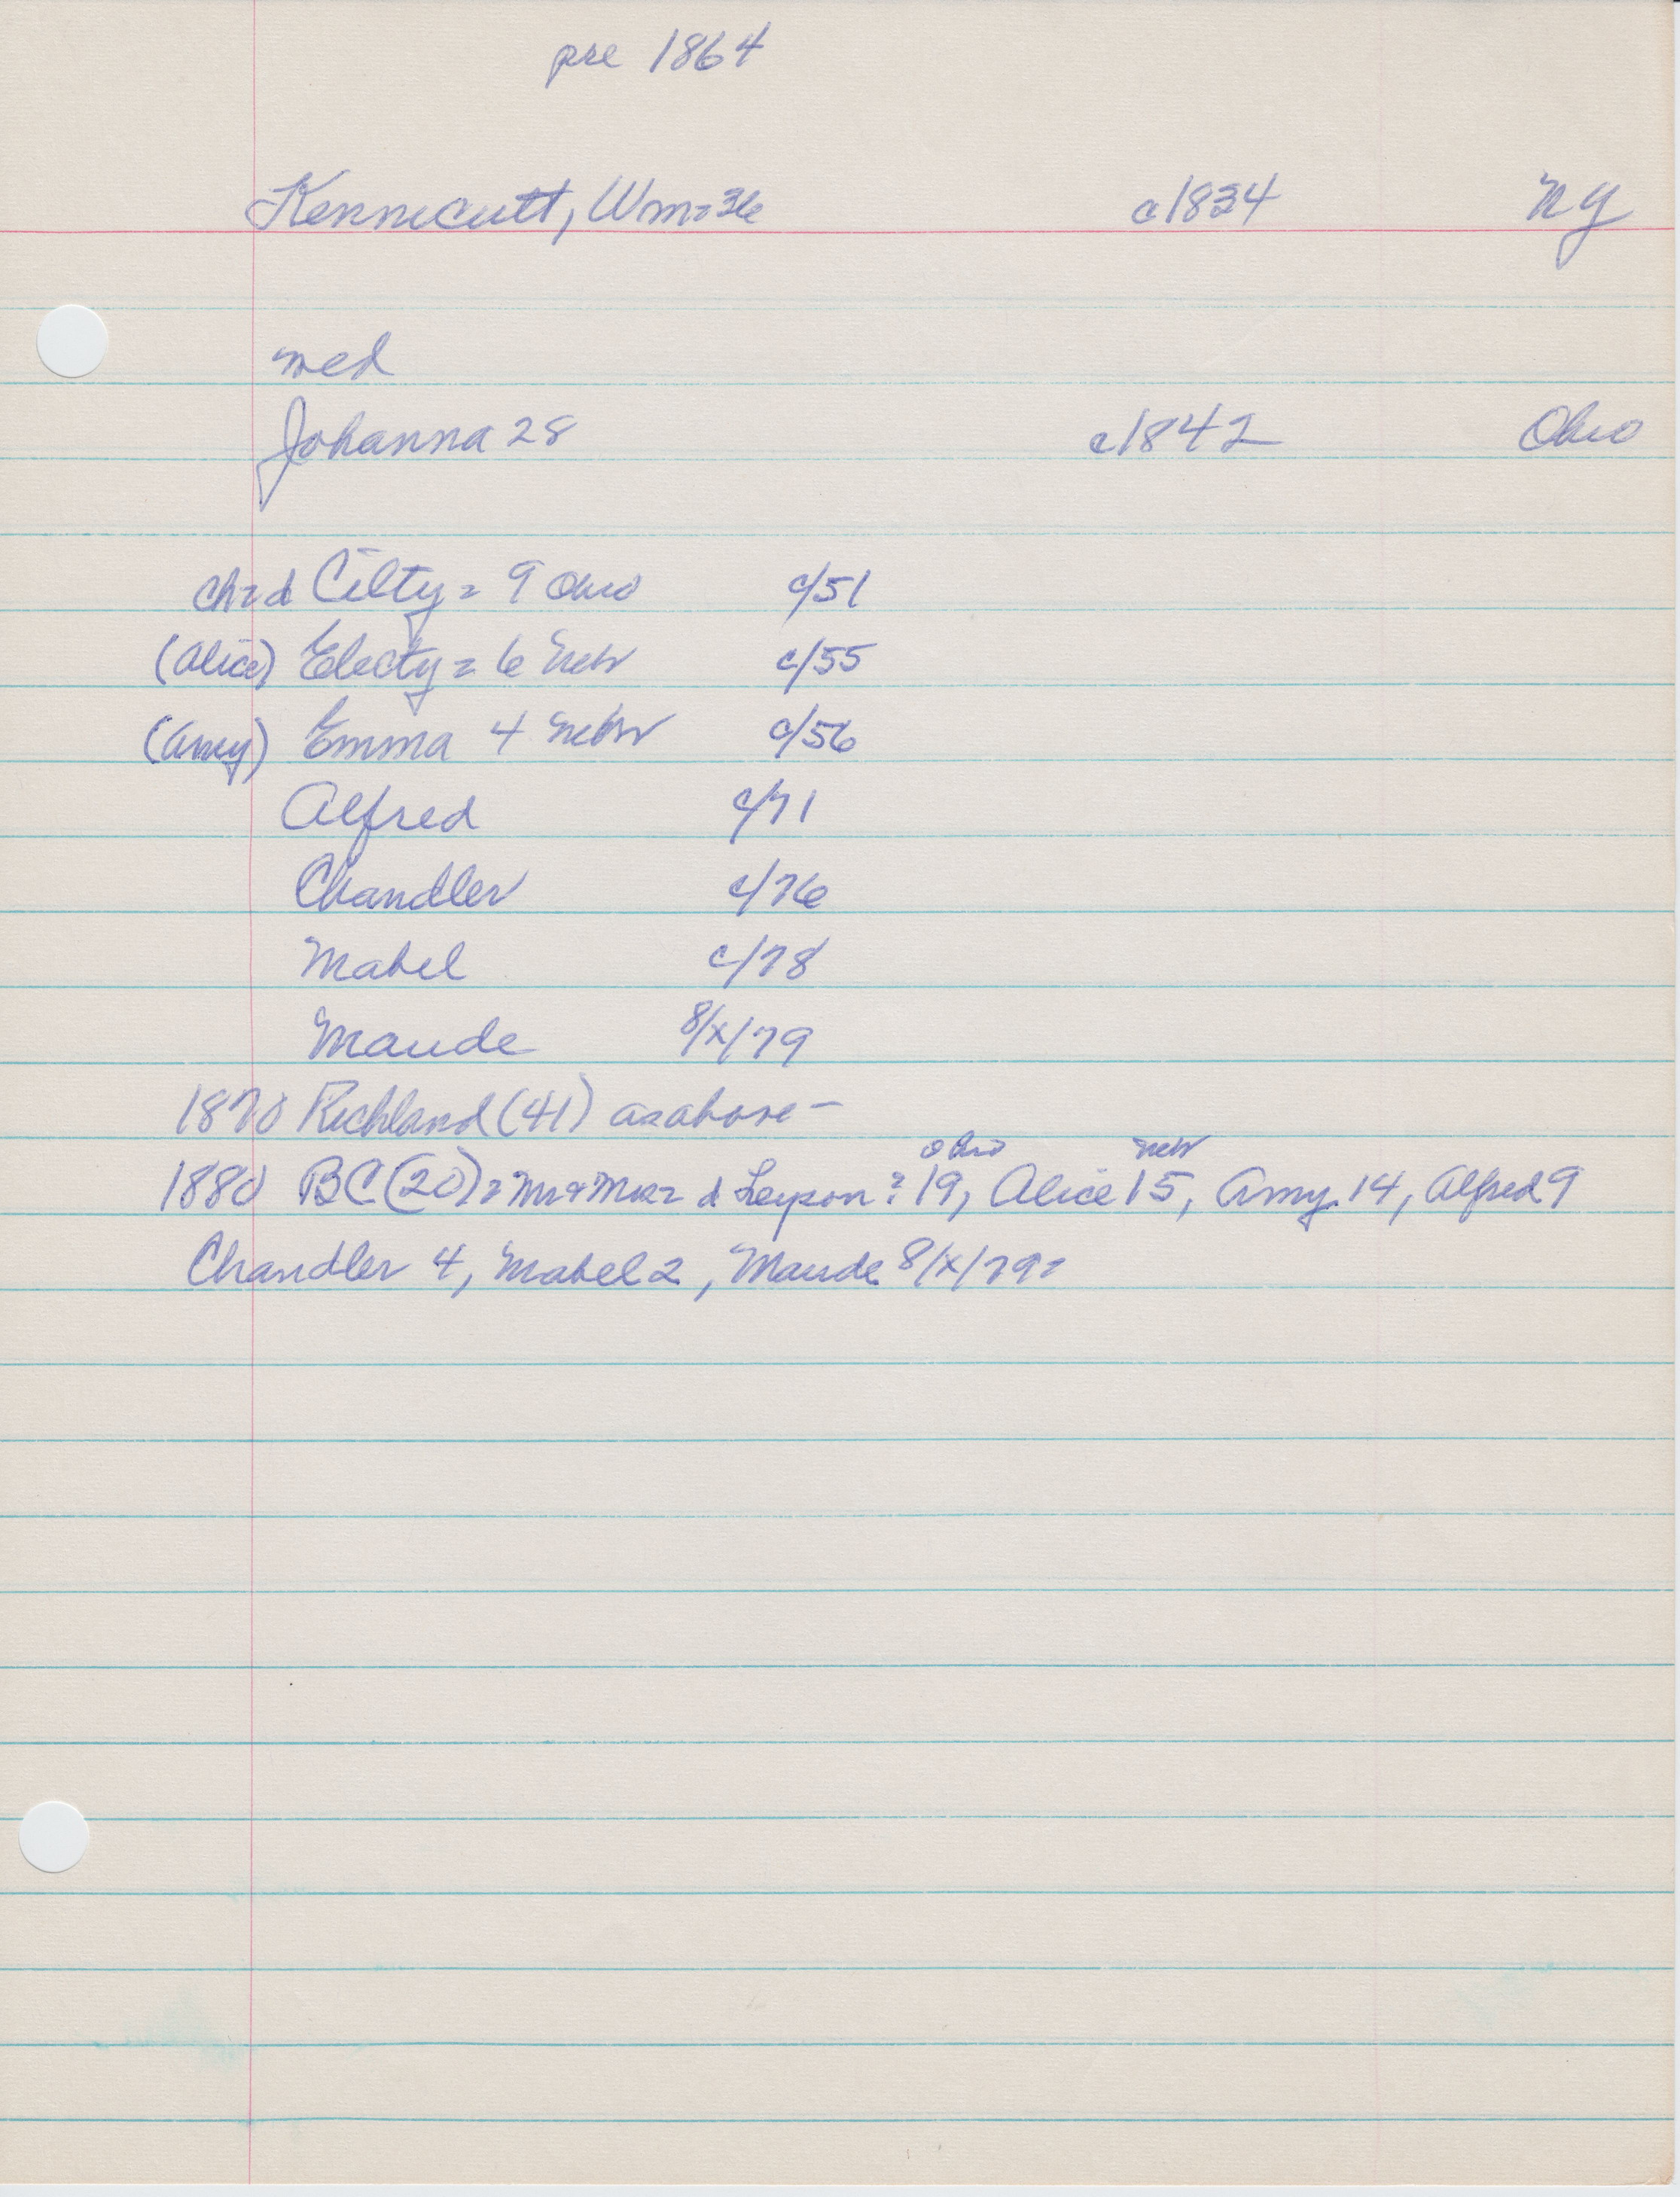 pre 1864
Kennicutt, Wm=36 c1834 NY
med
Johanna 28 c1842 Ohio
ch=d Cilty= 9 Ohio c/51
(Alice) Electy= 6 c/55
(Amy) Emma 4 c/56
Alfred c/71
Chandler c/76
Mabel c/78
Maude 8/x/79
1870 Richland (41) as above -
Ohio
1880 BC (20)= Mr & Mrs= d 19, Alice 15, Amy 14, Alfred 9
Chandler 4, Mabel 2, Maude 8/x/79=